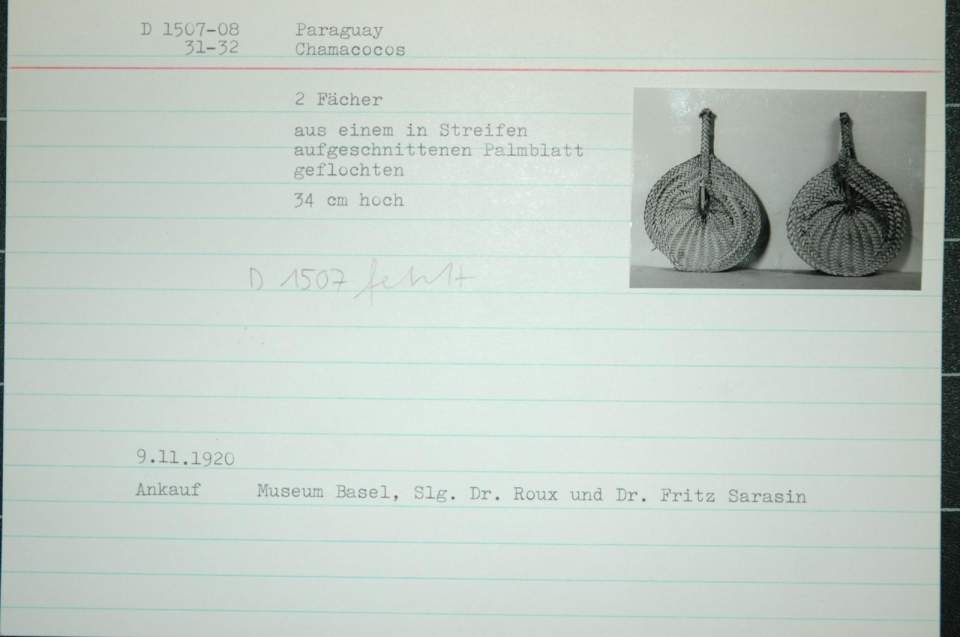 D 1507-08 Paraguay
31-32 Chamacocos
2 Fächer
aus einem in Streifen
aufgeschnittenen Palmblatt
geflochten
34 cm hoch
D 1507 fehlt
9.11.1920
Ankauf Museum Basel, Slg. Dr. Roux und Dr. Fritz Sarasin